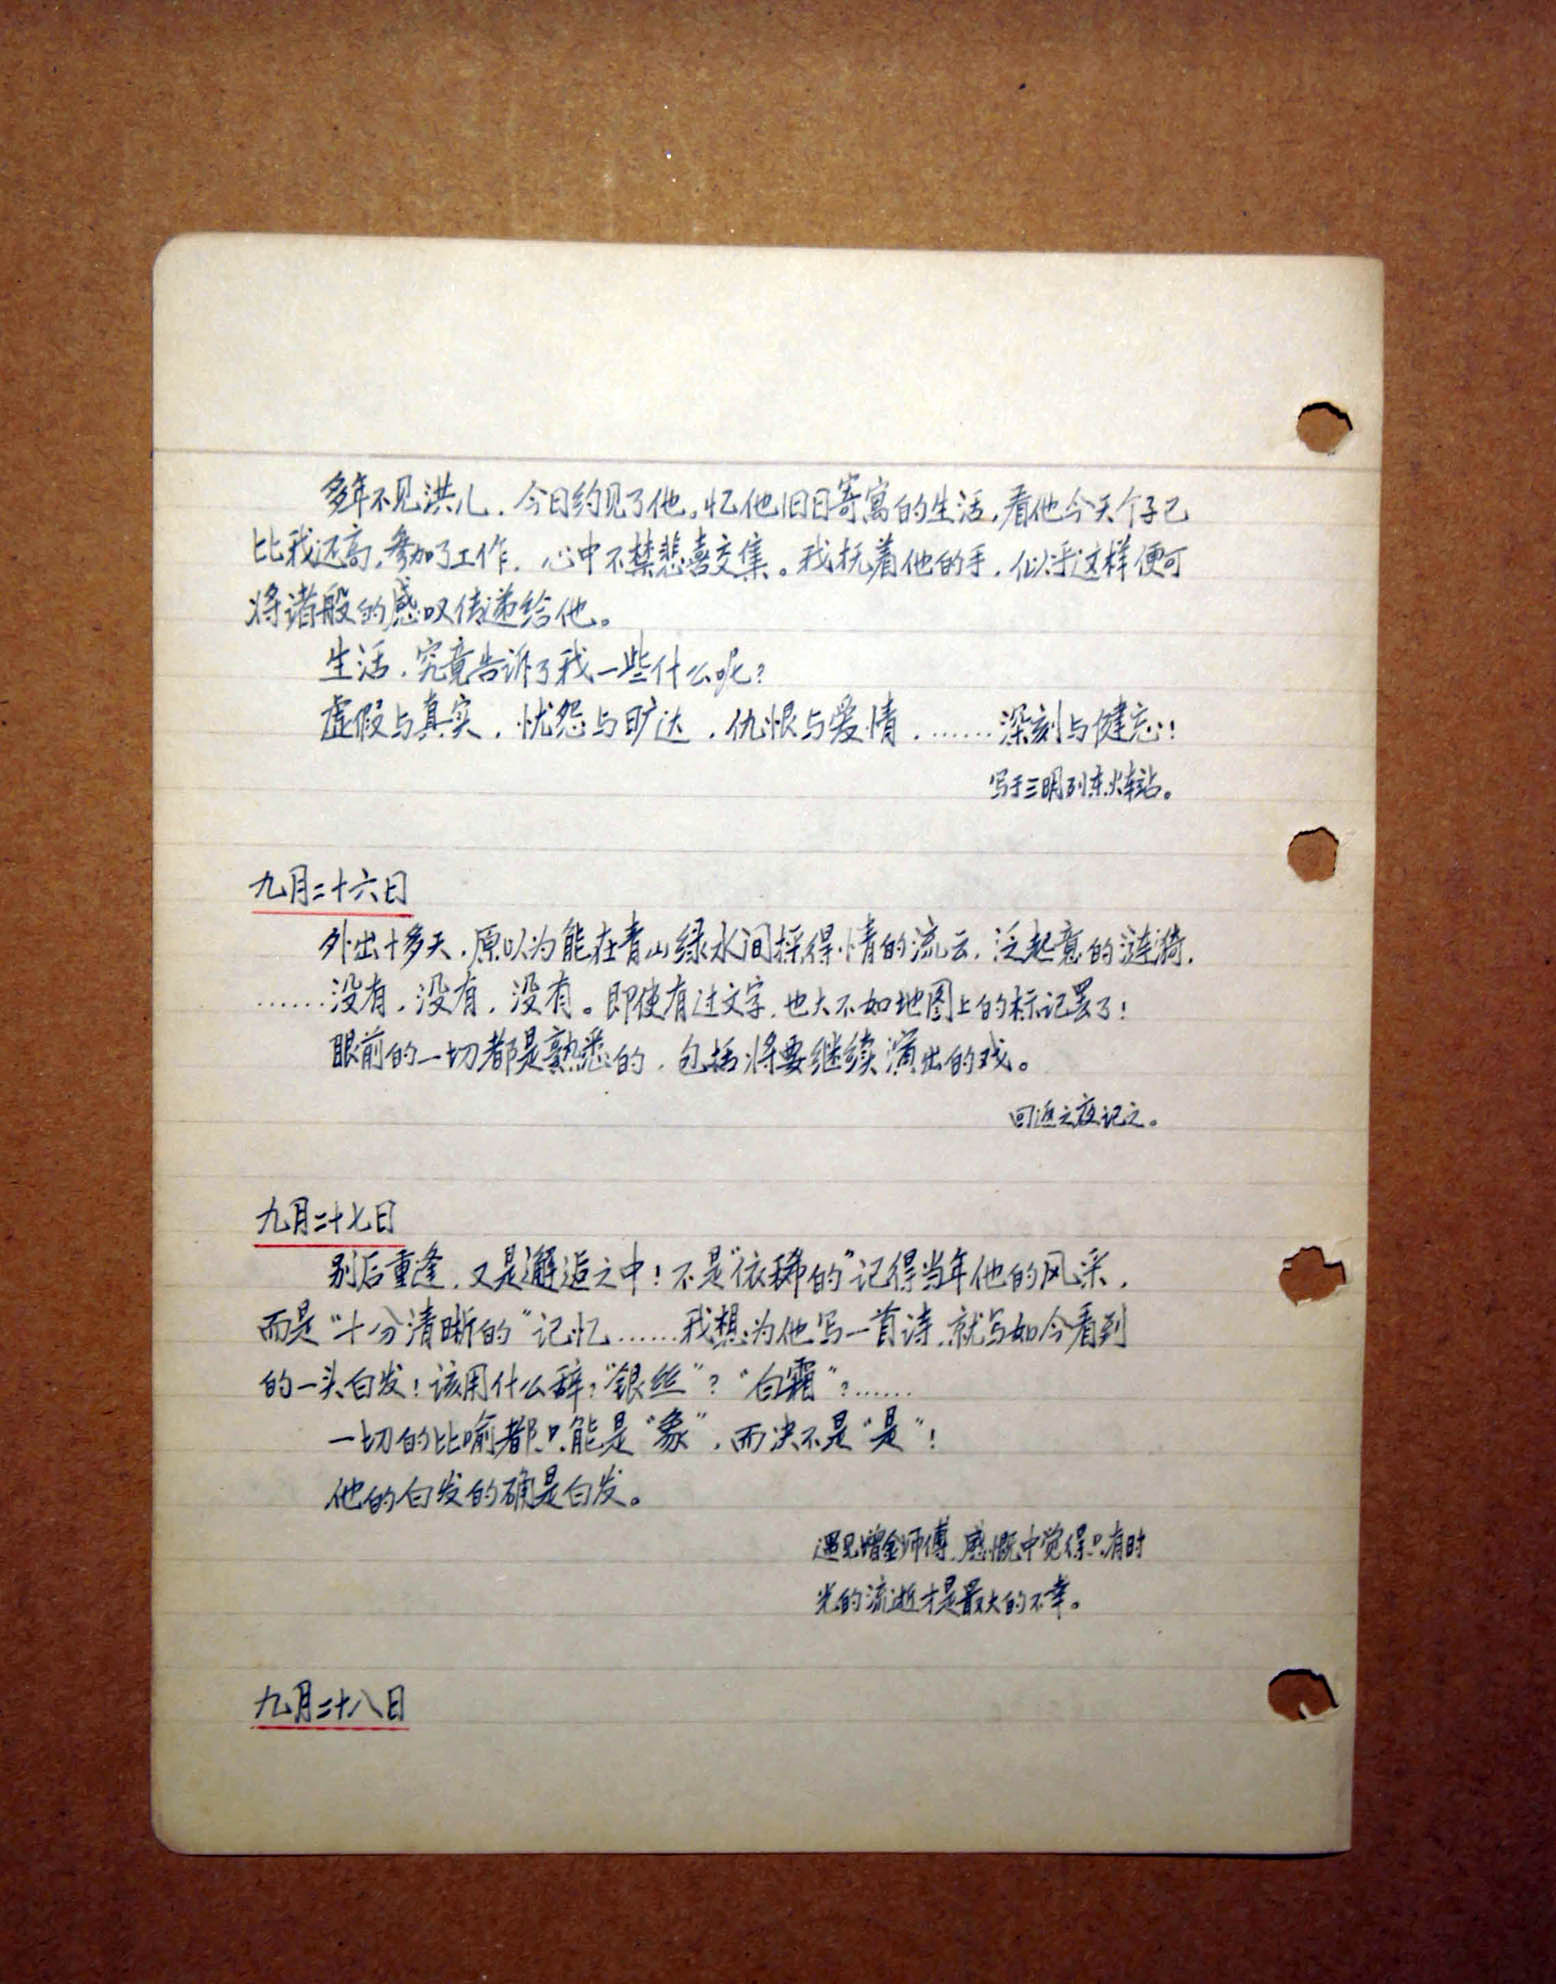 多年不见洪儿，今日约见了他，忆他旧日寄寓的生活，看他今天个子已
比我还高，参加了工作，心中不禁悲喜交集。我抚着他的手，似乎这样便可
将诸般的感叹传递给他。
生活，究竟告诉了我一些什么呢？
虚假与真实，忧怨与旷达，仇恨与爱情，……深刻与健忘！
写于三明列东火车站。
九月二十六日
外出十多天，原以为能在青山绿水间採得情的流云，泛起意的涟漪，
……没有，没有，没有。即使有过文字，也大不如地图上的标记罢了！
眼前的一切都是熟悉的，包括将要继续演出的戏。
回返之夜记之。
九月二十七日
别后重逢，又是邂逅之中！不是“依稀的”记得当年他的风采，
而是“十分清晰的”记忆……我想为他写一首诗，就写如今看到
的一头白发！该用什么辞？“银丝”？“白霜”？……
一切的比喻都只能是“象”，而决不是“是”！
他的白发的确是白发。
遇见增金师傅，感慨中觉得只有时
光的流逝才是最大的不幸。
九月二十八日